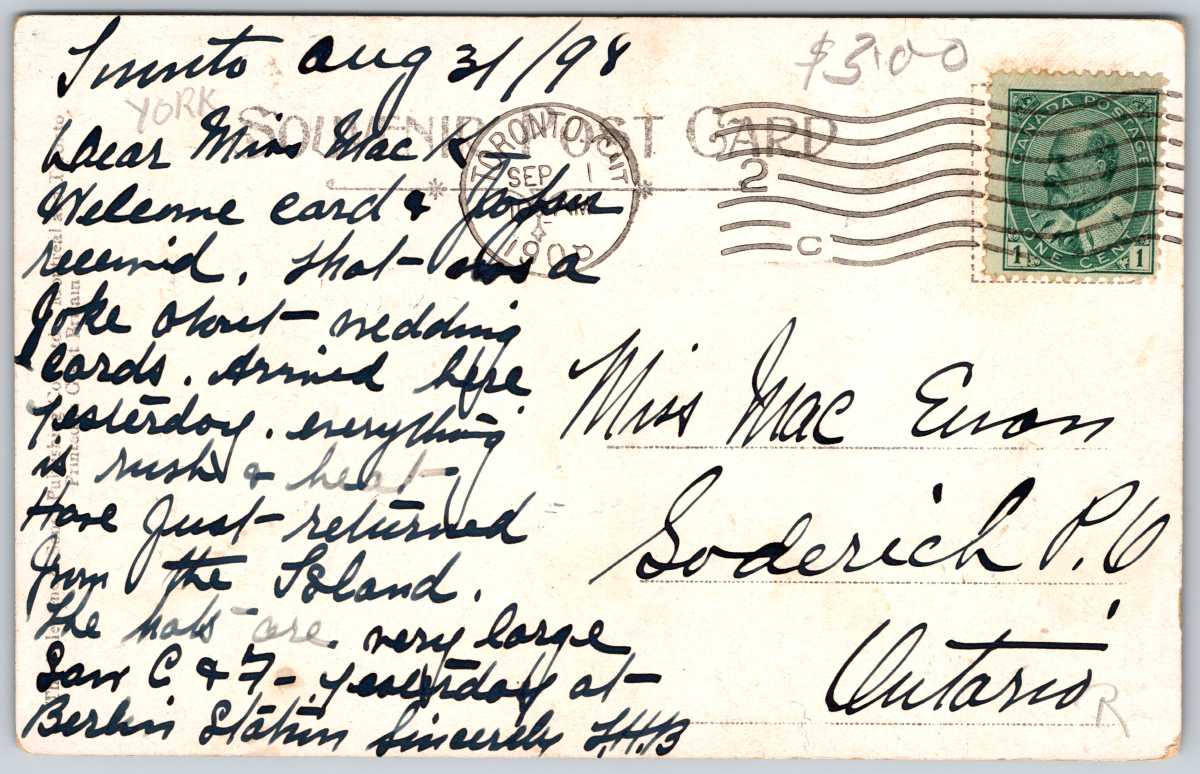 Toronto Aug 31/98
$3.00
YORK
SOUVENIR POST CARD
Dear Miss Mac K
Welcome card &
received. That was a
Joke about wedding
cards. Arrived here
yesterday. everything
is rush & heat
Have Just returned
from the Island.
The hats are very large
Saw C & F - yesterday at
Berlin Station Sincerely F.H.B
TORONTO, CAN
SEP 1
AM
190
2
C
CANADA POSTAGE
1 ONE CENT 1
Miss Mac Ewan
Goderich P.O
Ontario
R